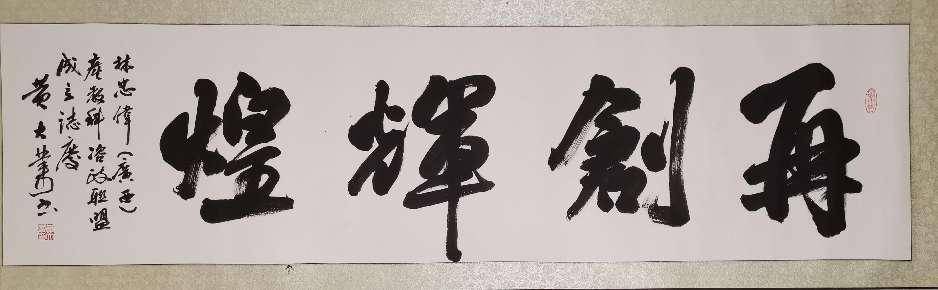 再創輝煌
林忠偉（廣西）
産教科洽政聯盟
成立誌慶
黃大業書